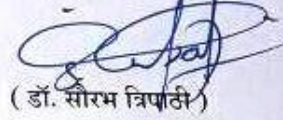 ( डॉ. सौरभ त्रिपाठी )